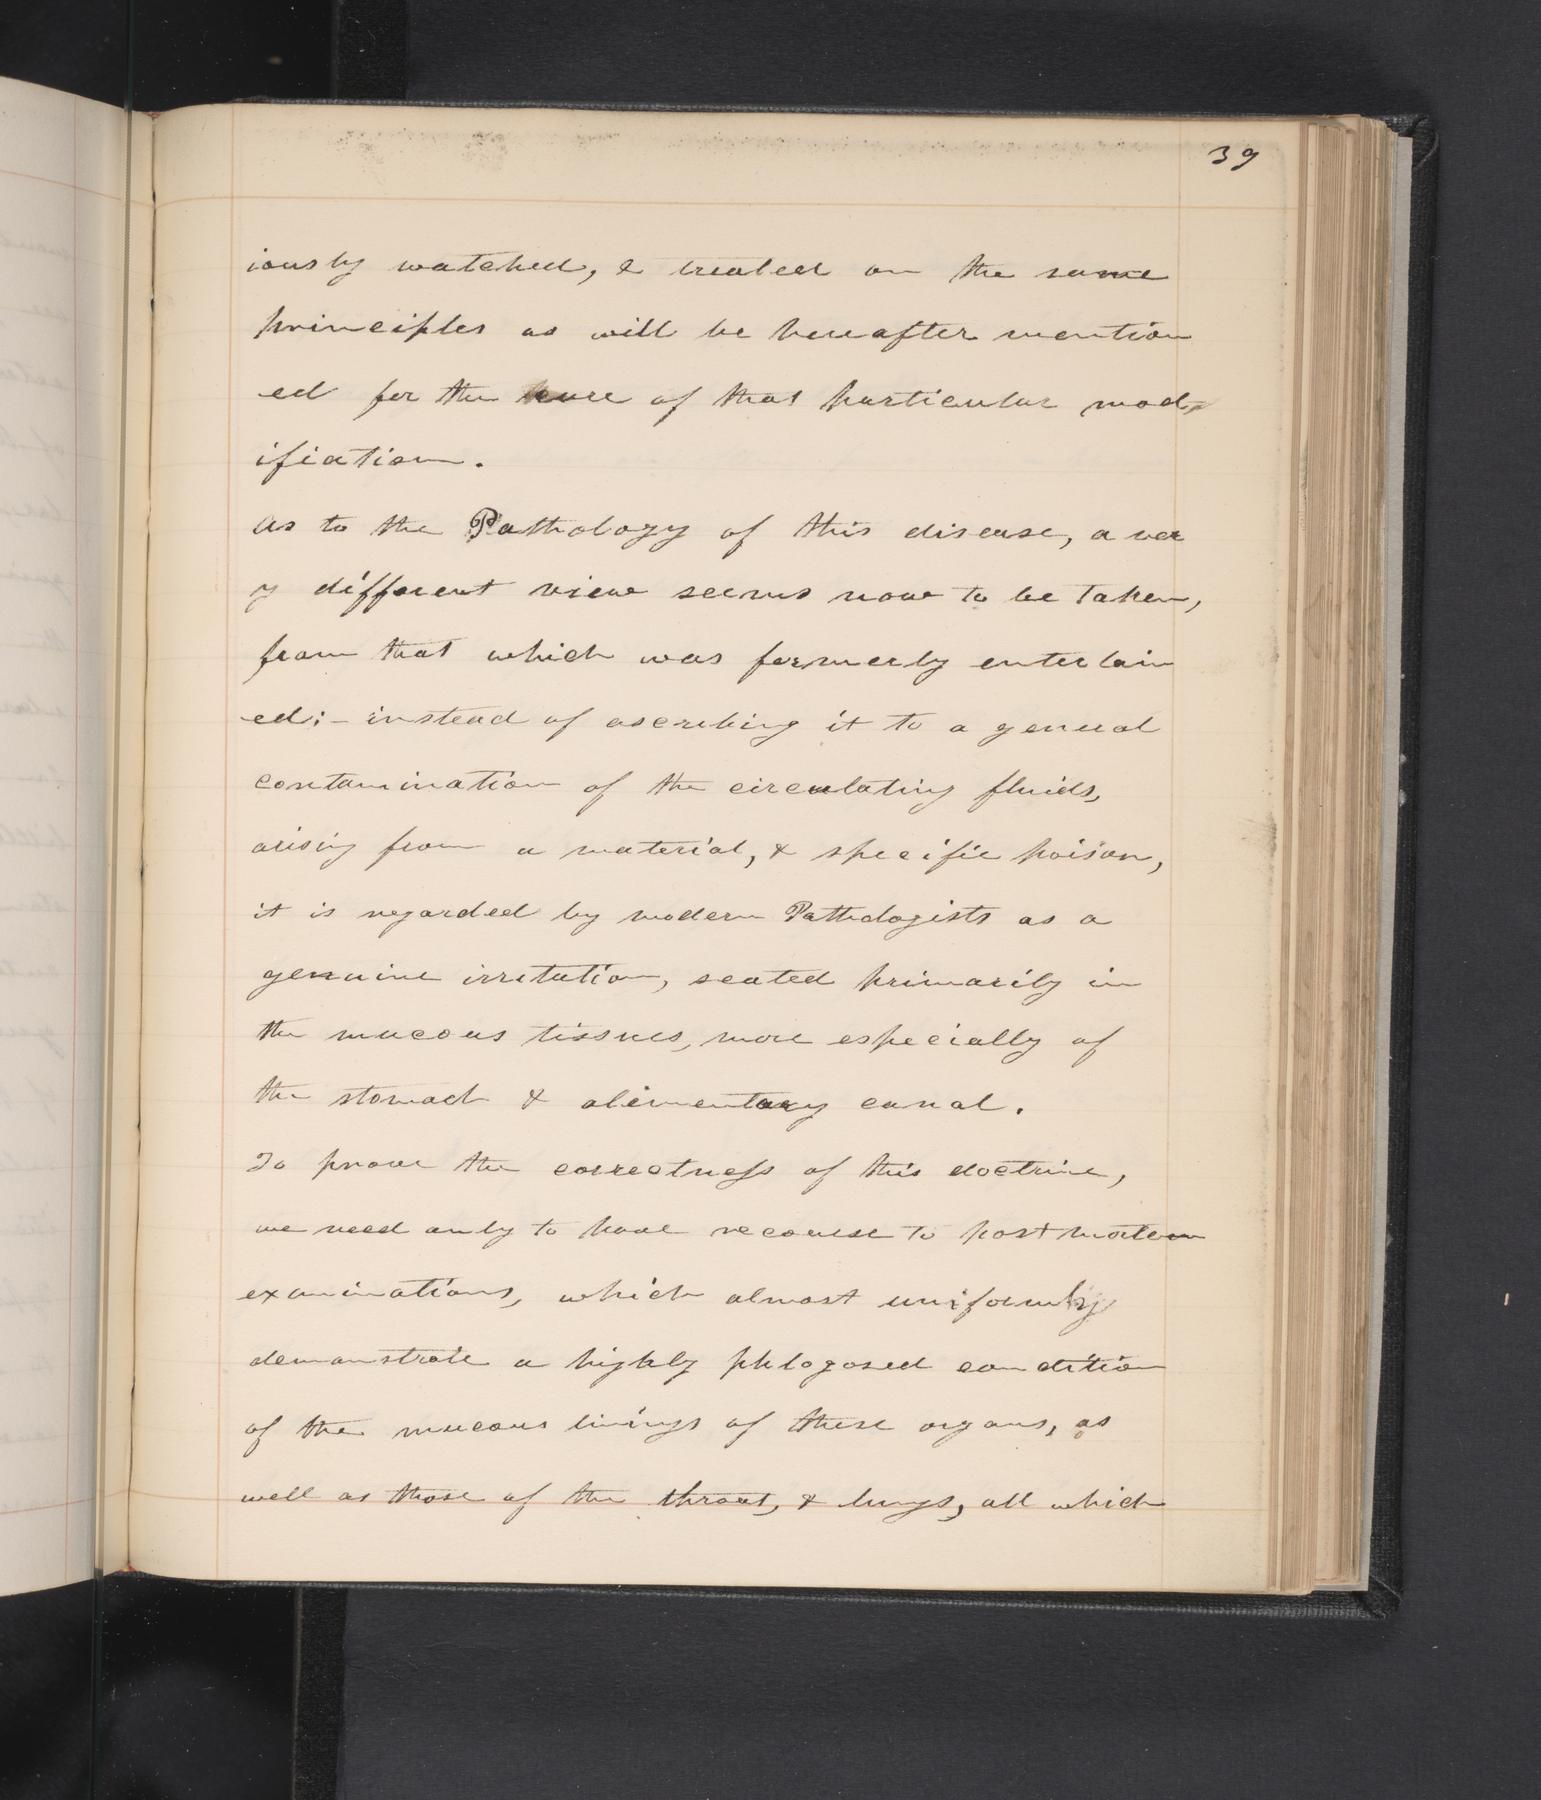 39
iously watched, & treated on the same
principles as will be hereafter mention
ed for the cure of that particular mod
ifiation.
As to the Pathology of this disease, a ver
y different view seems now to be taken,
from that which was formerly entertain
ed:- instead of ascribing it to a general
contamination of the circulating fluids,
arising from a material, & specific poison,
it is regarded by modern Pathologists as a
genuine irritation, seated primarily in
the mucous tissues, more especially of
the stomach & alimentary canal.
To prove the correctness of this doctrine,
we need only to have recourse to post mortem
examinations, which almost uniformly
demonstrate a highly phlogosed condition
of the mucous linings of these organs, as
well as those of the throat, & lungs, all which